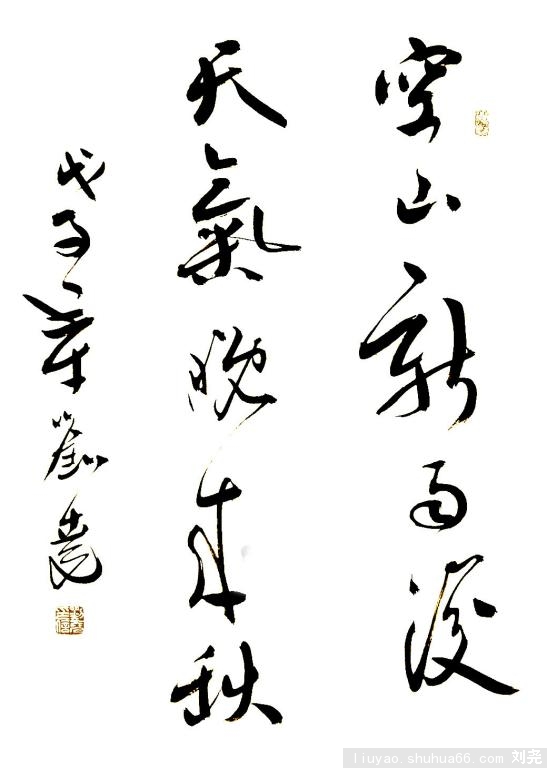 空山新雨後
天氣晚來秋
戊子年劉堯
liuyao.shuhua66.com 刘尧